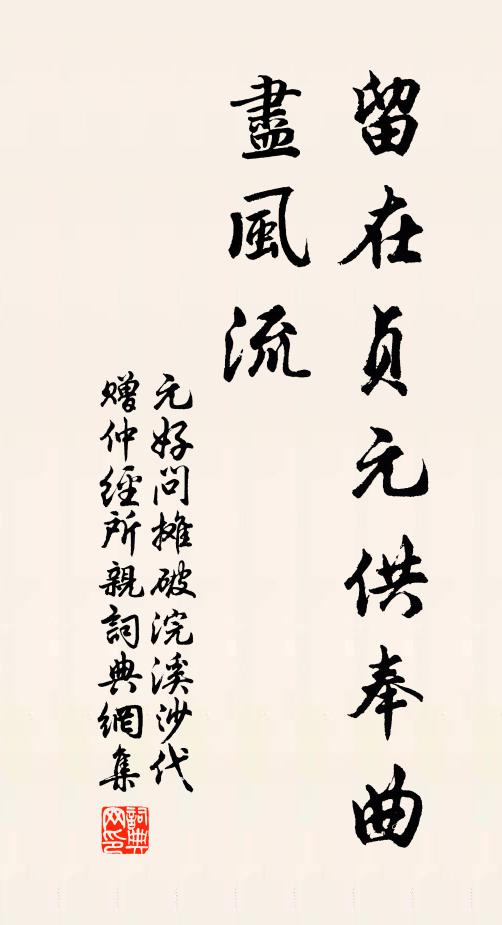 留在貞元供奉曲
盡風流
元好問攤破浣溪沙代
贈仲經所親詞典網集
詞典
网印